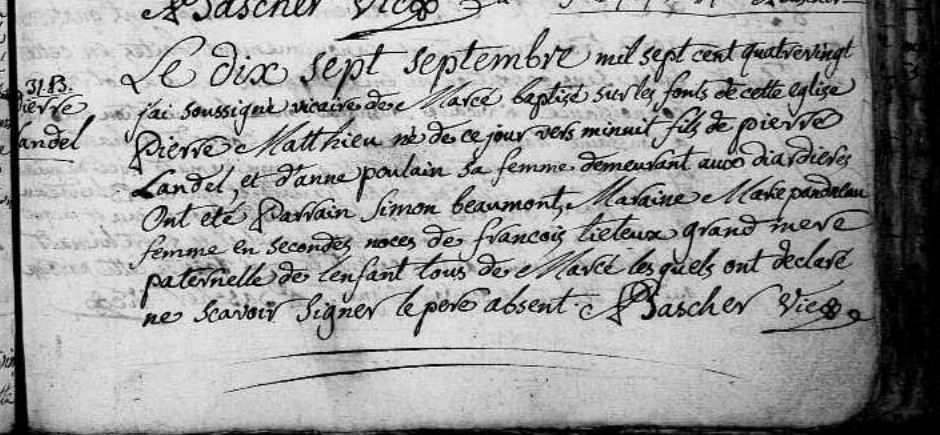 Pascher Vic
Le dix sept septembre mil sept cent quatrevingt
31. B.
pierre
Landel
jai soussigné vicaire de Marcé baptisé sur les fonts de cette eglise
Pierre Matthieu né de ce jour vers minuit fils de pierre
Landel, et d'anne poulain sa femme demeurant aux diardieres
Ont eté Parrain Simon beaumont, Maraine Marie pandreau
femme en secondes noces de francois lieteux grand mere
paternelle de lenfant tous de Marcé lesquels ont declaré
ne scavoir signer le pere absent. Pascher Vic